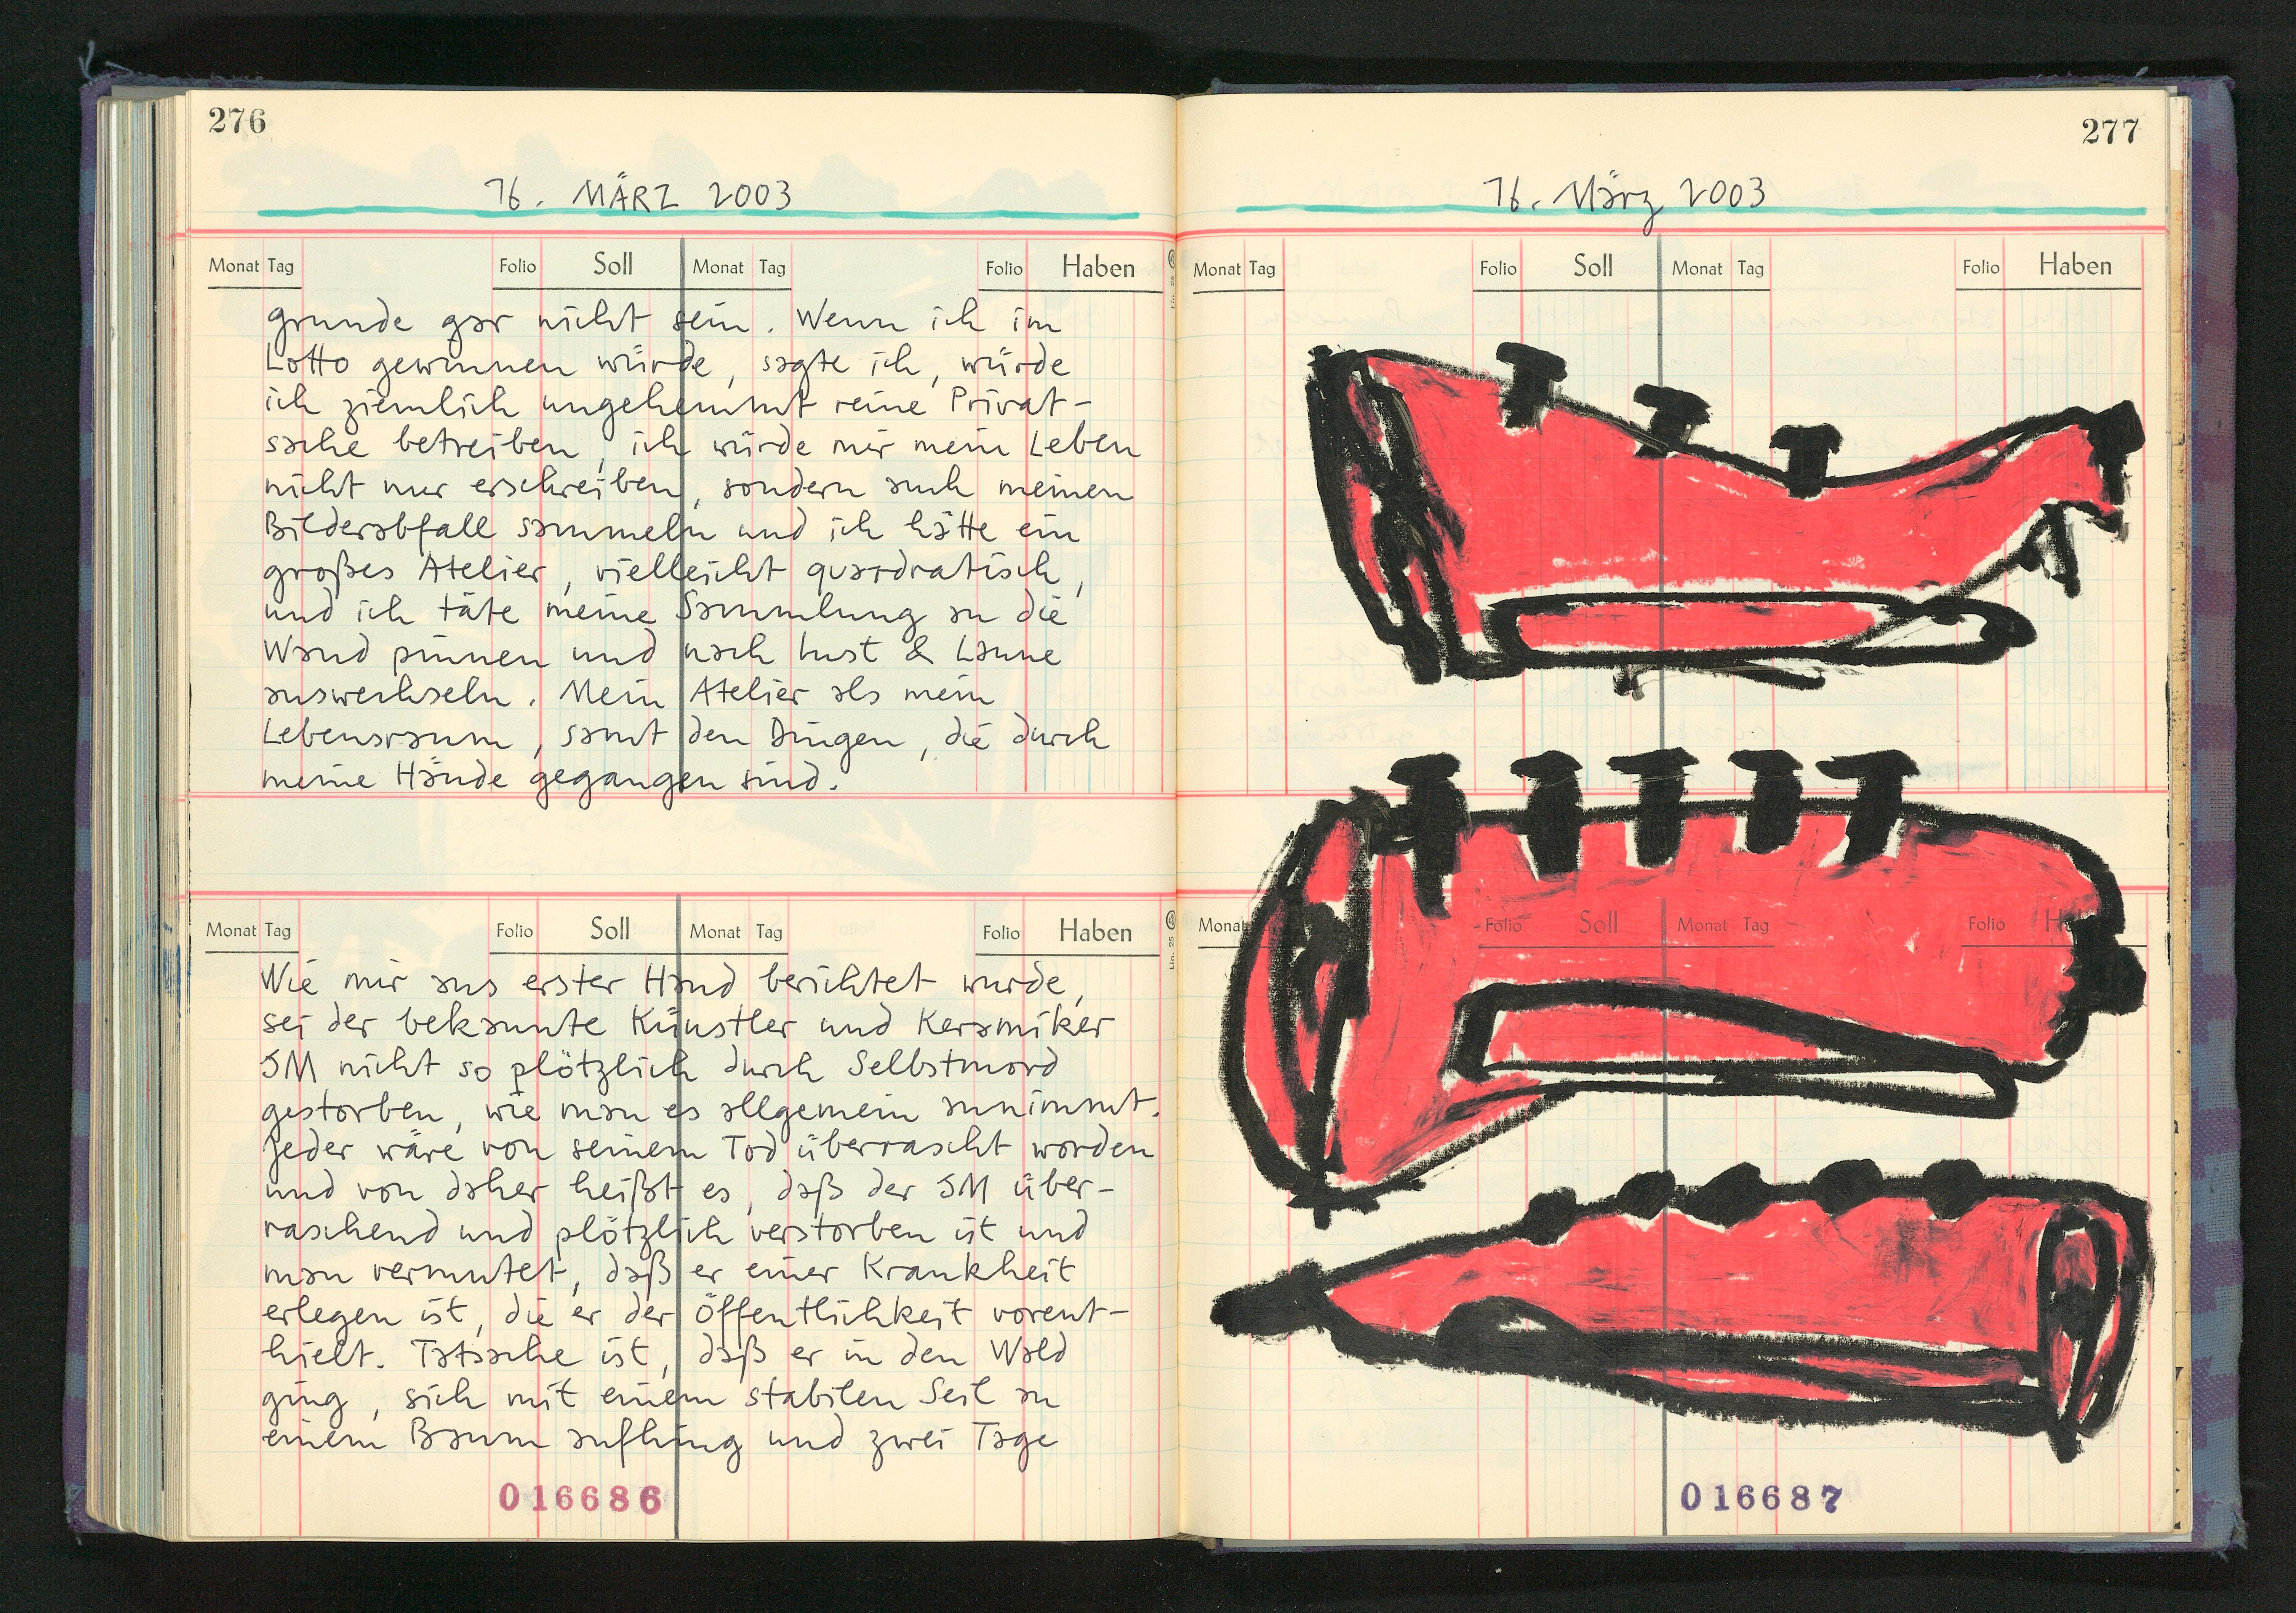 276
16. MÄRZ 2003
Monat Tag Folio Soll Monat Tag Folio Haben
grunde gar nicht sein. Wenn ich im
Lotto gewinnen würde, sagte ich, würde
ich ziemlich ungehemmt reine Privat-
sache betreiben, ich würde mir mein Leben
nicht nur erschreiben, sondern auch meinen
Bilderabfall sammeln und ich hätte ein
großes Atelier, vielleicht quadratisch,
und ich täte meine Sammlung an die
Wand pinnen und nach Lust & Laune
auswechseln. Mein Atelier als mein
Lebensraum, samt den Dingen, die durch
meine Hände gegangen sind.
Monat Tag Folio Soll Monat Tag Folio Haben
Wie mir aus erster Hand berichtet wurde,
sei der bekannte Künstler und Keramiker
SM nicht so plötzlich durch Selbstmord
gestorben, wie man es allgemein annimmt.
Jeder wäre von seinem Tod überrascht worden
und von daher heißt es, daß der SM über-
raschend und plötzlich verstorben ist und
man vermutet, daß er einer Krankheit
erlegen ist, die er der Öffentlichkeit vorent-
hielt. Tatsache ist, daß er in den Wald
ging, sich mit einem stabilen Seil an
einem Baum aufhing und zwei Tage
016686
277
16. März 2003
Monat Tag Folio Soll Monat Tag Folio Haben
Monat Folio Soll Monat Tag Folio
016687